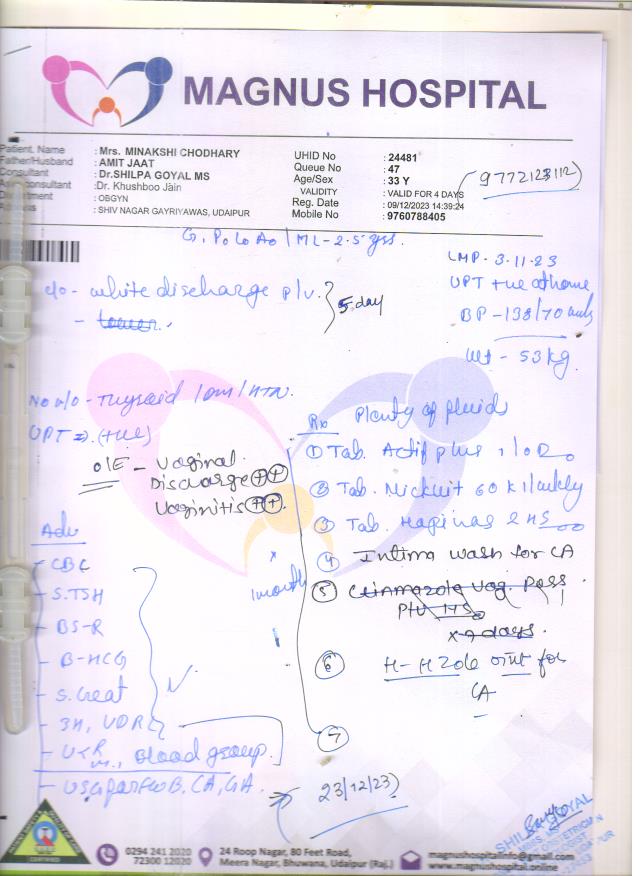 MAGNUS HOSPITAL
Patient. Name : Mrs. MINAKSHI CHODHARY
Father/Husband : AMIT JAAT
Consultant : Dr.SHILPA GOYAL MS
consultant : Dr. Khushboo Jain
: OBGYN
: SHIV NAGAR GAYRIYAWAS, UDAIPUR
UHID No : 24481
Queue No : 47
Age/Sex : 33 Y
VALIDITY : VALID FOR 4 DAYS
Reg. Date : 09/12/2023 14:39:24
Mobile No : 9760788405
G1 P0 L0 A0 / ML - 2.5 yrs.
LMP - 3.11.23
UPT +ue at home
BP - 138/70
Wt - 53 kg.
c/o - white discharge P/V. 5 day
No H/O - Thyroid / DM / HTN.
UPT (+ue)
O/E - Vaginal
Discharge ++
Vaginitis ++
Adv
- CBC
- S.TSH
- BS-R
- B-HCG
- S. Creat
- 3H, VDRL
- Blood group.
- USG for FWB, CA, GA.
1 month
Rx Plenty of fluid
1 Tab. Actif plus 1 OD
2 Tab. 60 K 1/weekly
3 Tab. HS
4 Intima wash for LA
5 Vag. Pess
P/V HS
x 7 days.
6 H-Hzole oint for
LA
7
23/12/23
0294 241 2020
72300 12020
24 Roop Nagar, 80 Feet Road,
Meera Nagar, Bhuwana, Udaipur (Raj.)
magnushospitalinfo@gmail.com
www.magnushospital.online